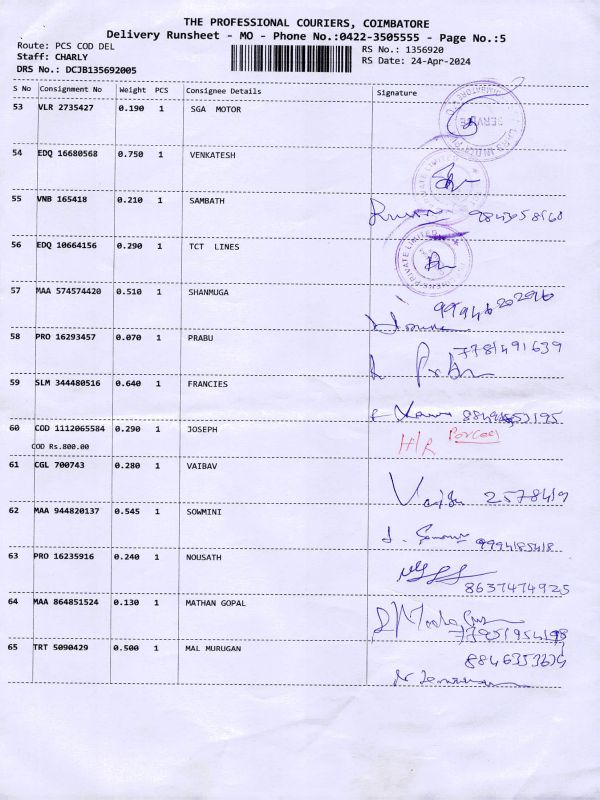 THE PROFESSIONAL COURIERS, COIMBATORE
Delivery Runsheet - MO - Phone No.:0422-3505555 - Page No.:5
Route: PCS COD DEL
RS No.: 1356920
Staff: CHARLY
RS Date: 24-Apr-2024
DRS No.: DCJB135692005
S No Consignment No Weight PCS Consignee Details Signature
53 VLR 2735427 0.190 1 SGA MOTOR
54 EDQ 16680568 0.750 1 VENKATESH
55 VNB 165418 0.210 1 SAMBATH
56 EDQ 10664156 0.290 1 TCT LINES
PRIVATE LIMITED
57 MAA 574574420 0.510 1 SHANMUGA
58 PRO 16293457 0.070 1 PRABU
7781491639
59 SLM 344480516 0.640 1 FRANCIES
60 COD 1112065584 0.290 1 JOSEPH
COD Rs.800.00
H/R
61 CGL 700743 0.280 1 VAIBAV
2578419
62 MAA 944820137 0.545 1 SOWMINI
9994185418
63 PRO 16235916 0.240 1 NOUSATH
8637474925
64 MAA 864851524 0.130 1 MATHAN GOPAL
65 TRT 5090429 0.500 1 MAL MURUGAN